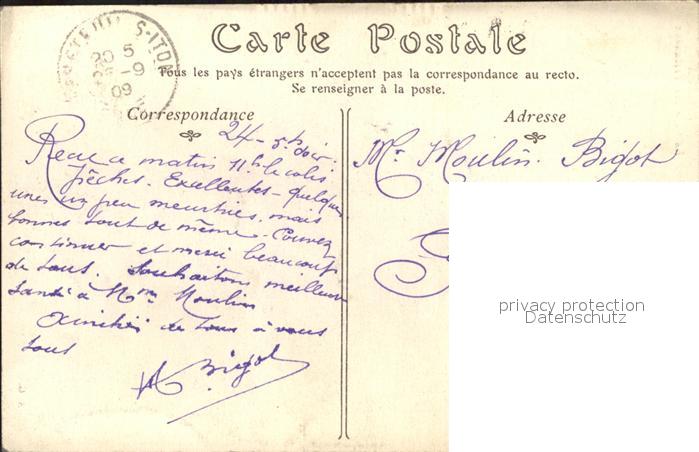 Carte Postale
Tous les pays étrangers n'acceptent pas la correspondance au recto.
Se renseigner à la poste.
Correspondance
24 - 5h soir.
Recu ce matin 11h le colis
pêches. Excellentes - quelques
unes un peu meurtries, mais
bonnes tout de même. Pouvez
continuer et merci beaucoup
de tous. Souhaitons meilleure
santé à Mme Moulin
Amitiés de tous à vous
tous
A Bigot
Adresse
Mr Moulin-Bigot
S-ITON
20 5
-9
09
privacy protection
Datenschutz